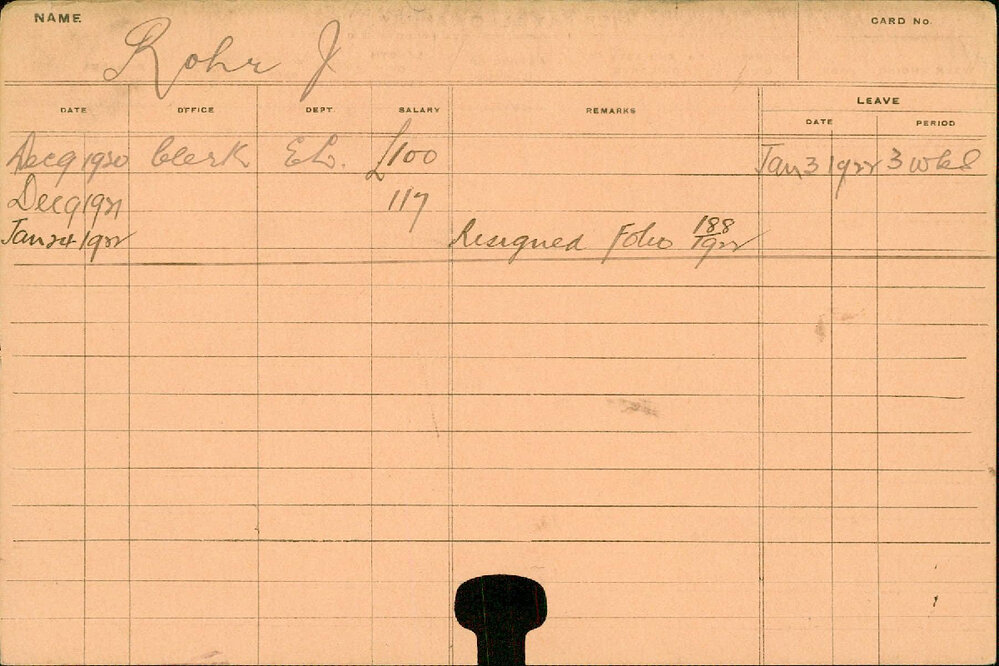 NAME Rohr J CARD No.
DATE OFFICE DEPT SALARY REMARKS LEAVE
DATE PERIOD
Dec 9 1920 Clerk E.L. £100 Jan 3 1922 3 wks
Dec 9 1921 117
Jan 24 1922 Resigned Folio 188/1922